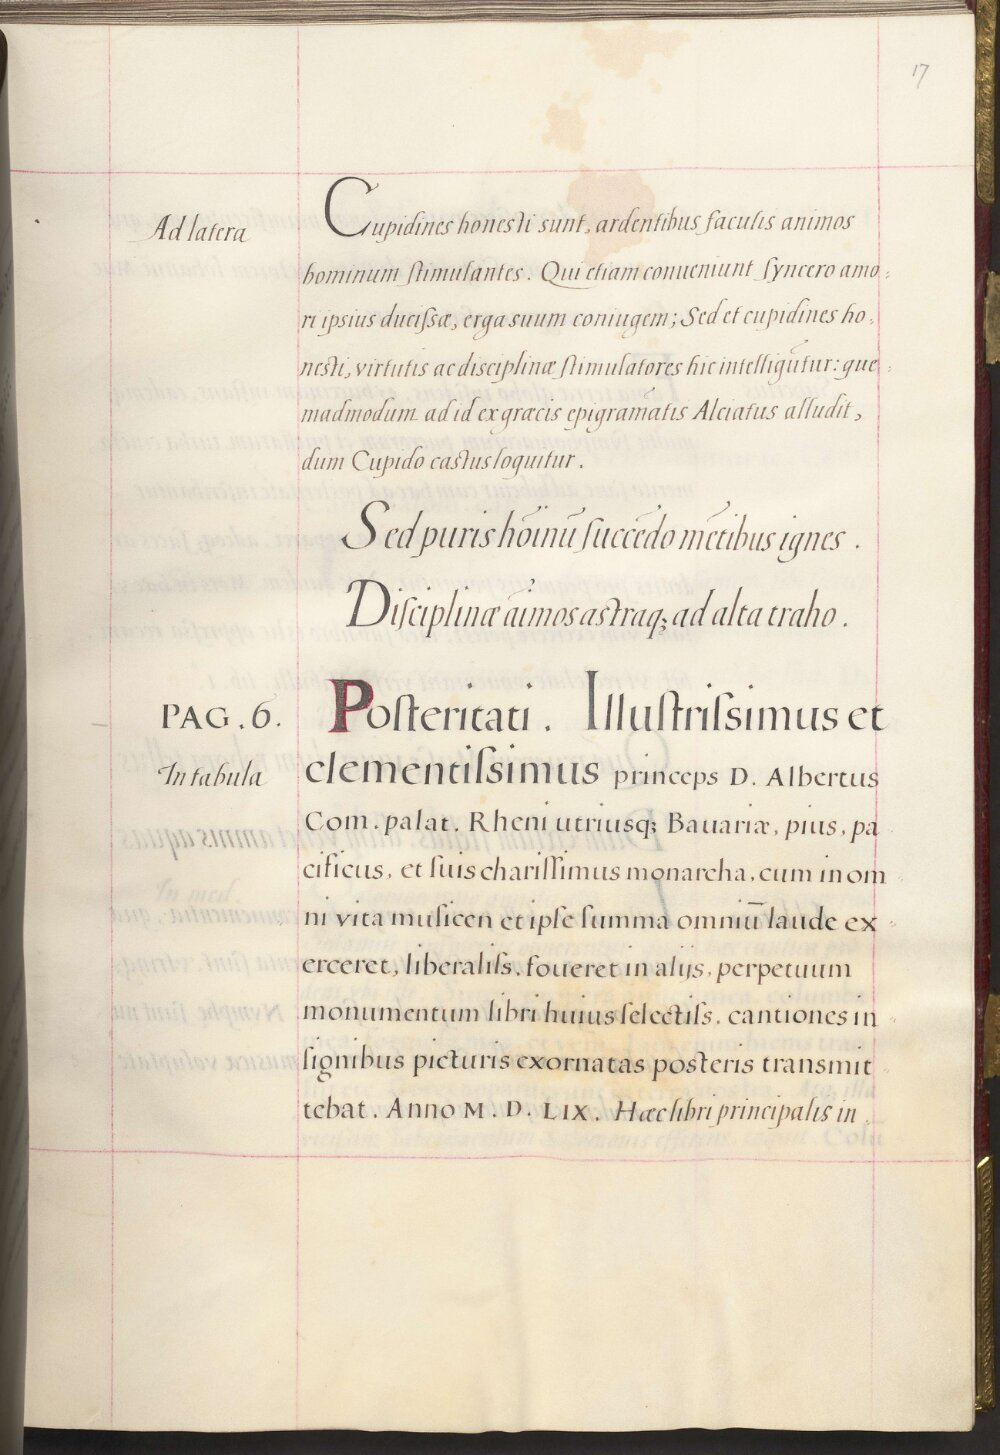 17
Ad latera
Cupidines honesti sunt, ardentibus faculis animos
hominum ſtimulantes. Qui etiam conueniunt ſyncero amo,
ri ipsius duciſsæ, erga suum coniugem; Sed et cupidines ho,
nesti, virtutis ac disciplinæ ſtimulatores hic intelligūtur: que
madmodum ad id ex græcis epigramatis Alciatus alludit,
dum Cupido castus loquitur.
Sed puris hōinū ſuccēdo mētibus ignes.
Diſciplinæ āimos astraq; ad alta traho.
PAG. 6.
Poſteritati. Illuſtriſsimus et
In tabula
clementiſsimus princeps D. Albertus
Com. palat. Rheni utriusq; Bauariæ, pius, pa
cificus, et ſuis chariſſimus monarcha, cum in om
ni vita muſicen et ipſe ſumma omniū laude ex
erceret, liberaliſs. foueret in alijs, perpetuum
monumentum libri huius ſelectiſs. cantiones in
ſignibus picturis exornatas posteris transmit
tebat. Anno M. D. LIX. Hæc libri principalis in,